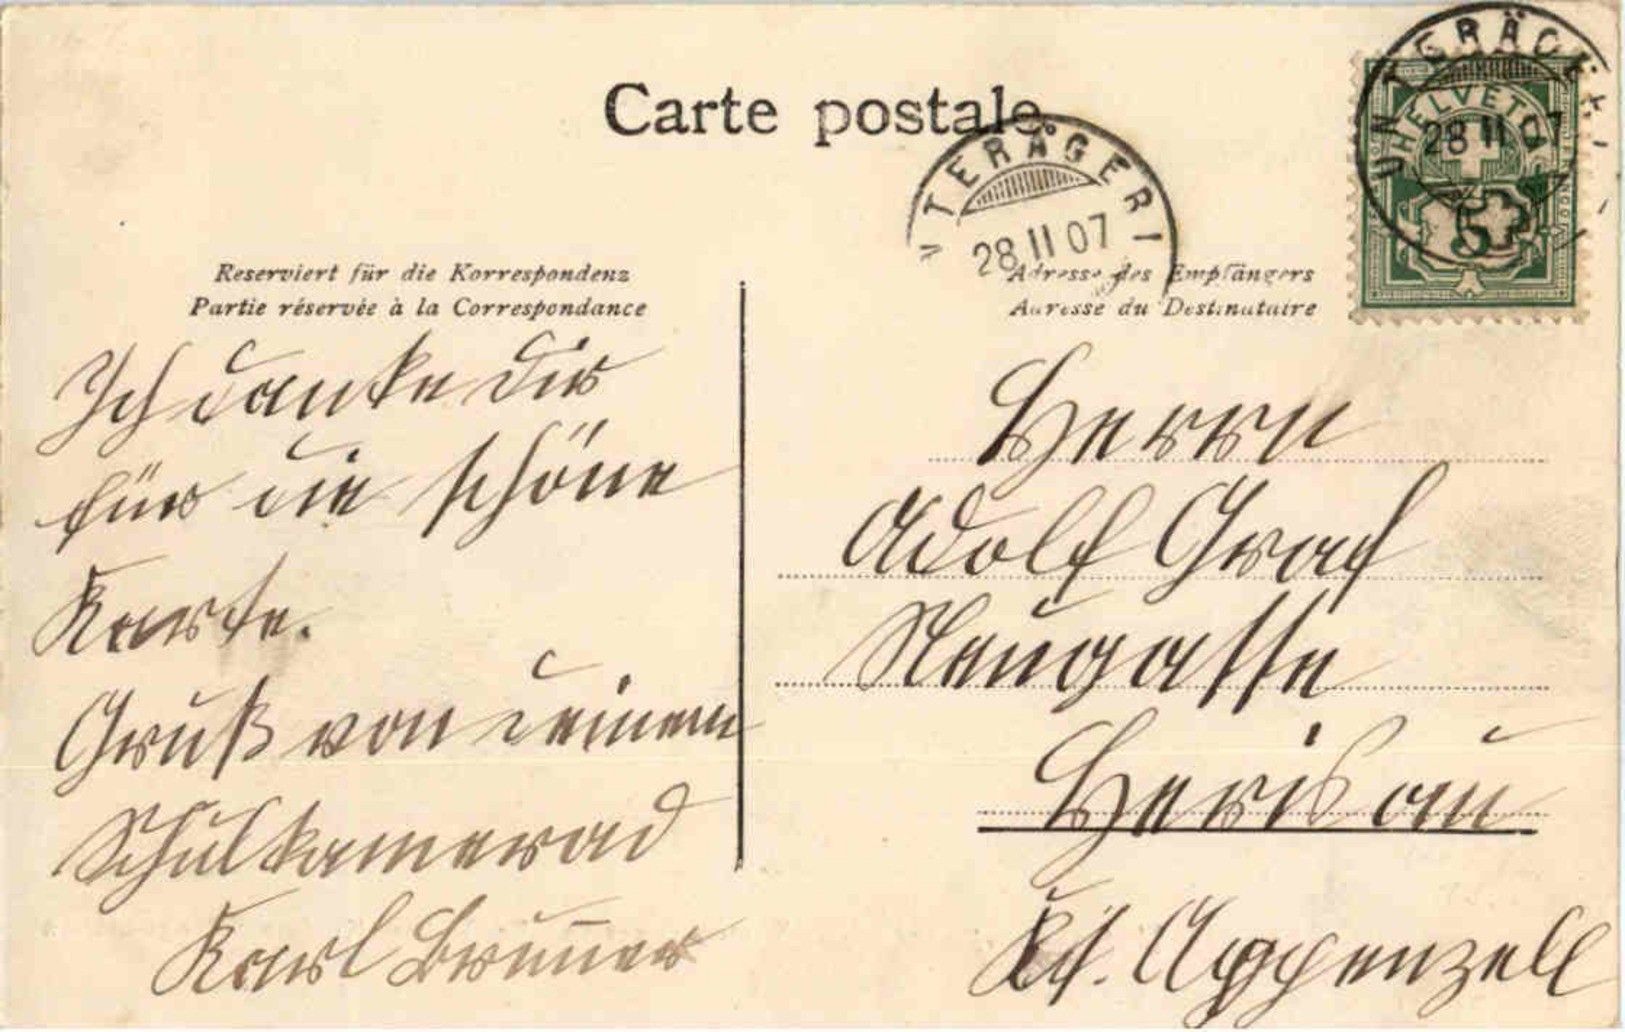 Carte postale
UNTERÄGERI
28 II 07
UNTERÄGERI
28 II 07
HELVETIA
5
Reserviert für die Korrespondenz
Partie réservée à la Correspondance
Adresse des Empfängers
Adresse du Destinataire
Ich danke dir
für die schöne
Karte.
Gruß von deinem
Schulkamerad
Karl Brun̄er
Herrn
Adolf Graf
Neugasse
Herisau
Kt. Appenzell